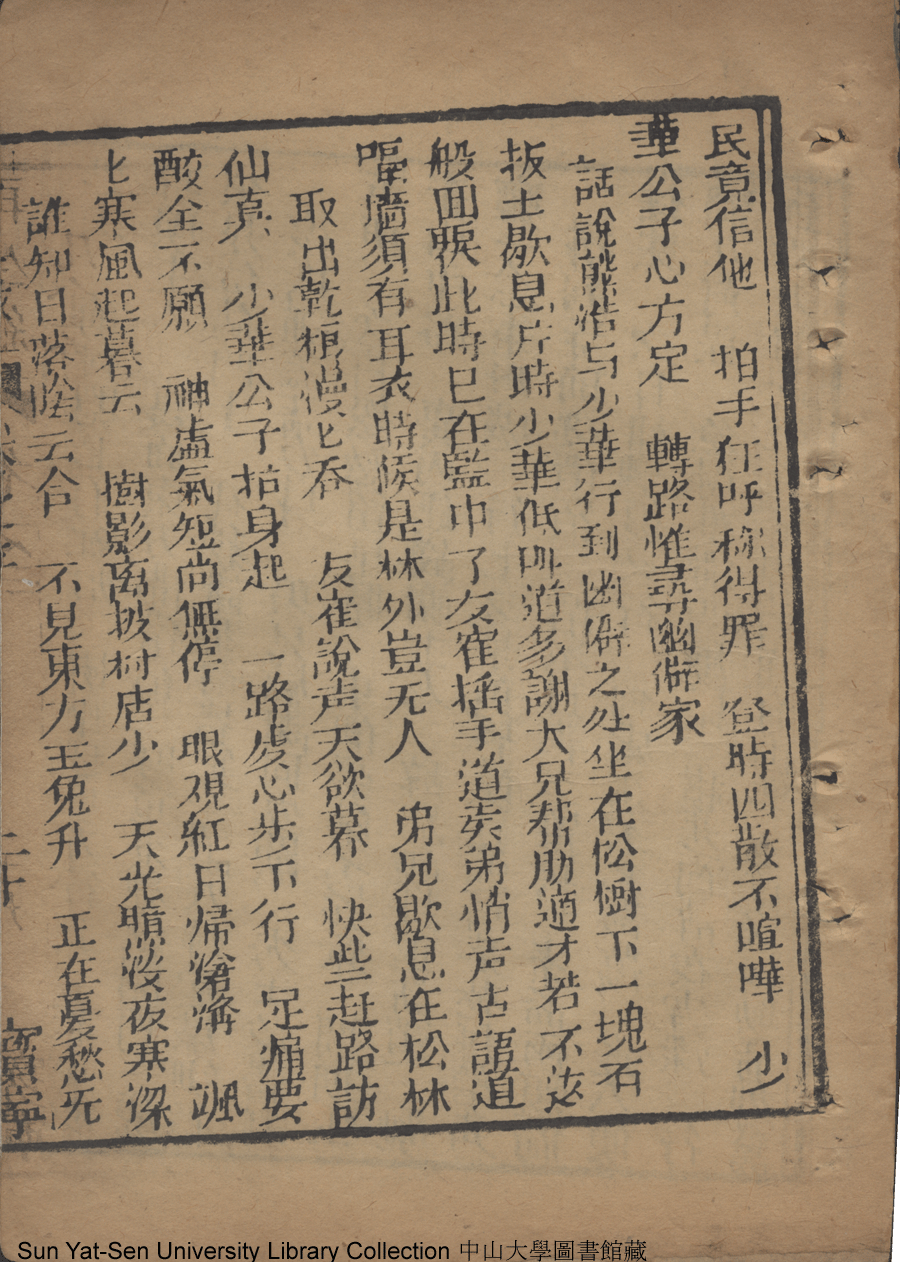 民竟信他　拍手狂呼称得罪　登時四散不喧嘩　少
華公子心方定　轉路惟尋幽僻家
話說熊浩与少華行到幽僻之处坐在松樹下一塊石
扳上歇息片時少華低叫道多謝大兄帮助適才若不这
般回覆此時已在監中了友崔揺手道賢弟悄声古語道
墻須有耳衣時候是林外豈无人　弟兄歇息在松林
取出乾粮漫匕吞　友崔說声天欲暮　快些赶路訪
仙真　少華公子抬身起　一路虔心步不行　足痛要
酸全不願　神虚氣短尚無停　眼視紅日帰滄海　颯
匕寒風起暮云　樹影离披村店少　天光暗淡夜寒深
誰知日落陰云合　不見東方玉兔升　正在憂愁无
二十
寳寧
Sun Yat-Sen University Library Collection 中山大學圖書館藏